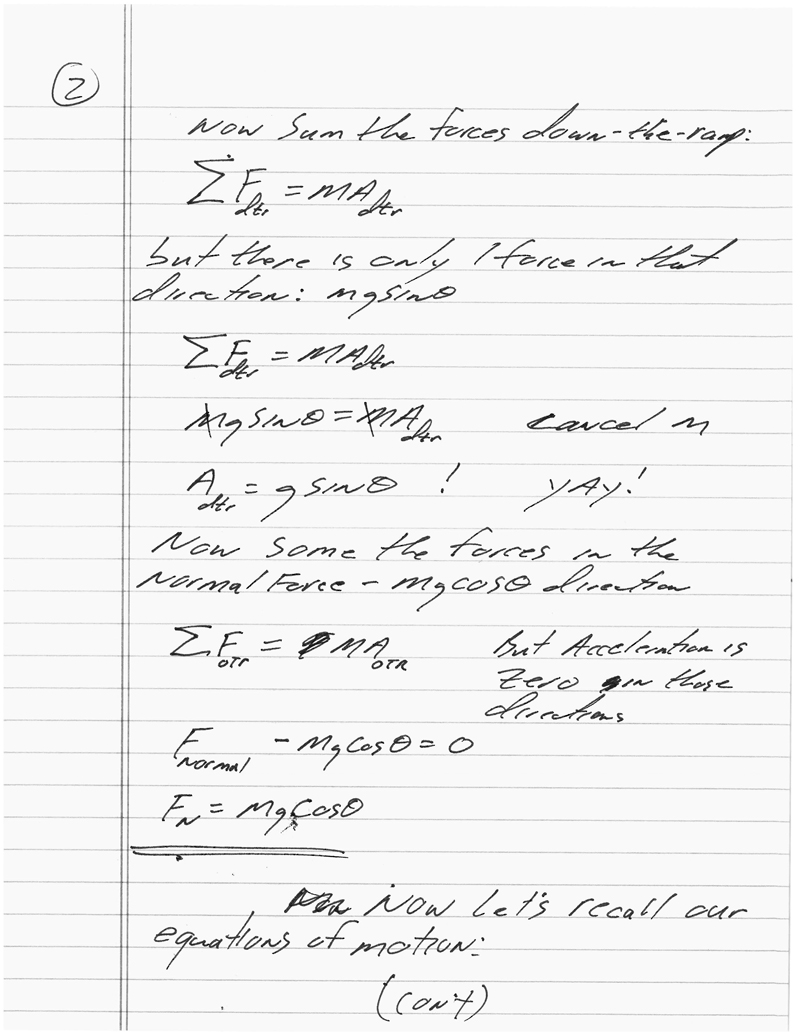 2
Now Sum the forces down-the-ramp:
ΣF dtr = MA dtr
but there is only 1 force in that
direction: mgsinθ
ΣF dtr = MA dtr
MgSINθ = MA dtr cancel m
A dtr = gSINθ ! YAY!
Now Some the forces in the
Normal Force - Mgcosθ direction
ΣF OTR = MA OTR But Acceleration is
Zero in those
directions
F Normal - MgCosθ = 0
F N = MgCosθ
Now Let's recall our
equations of motion:
(con't)